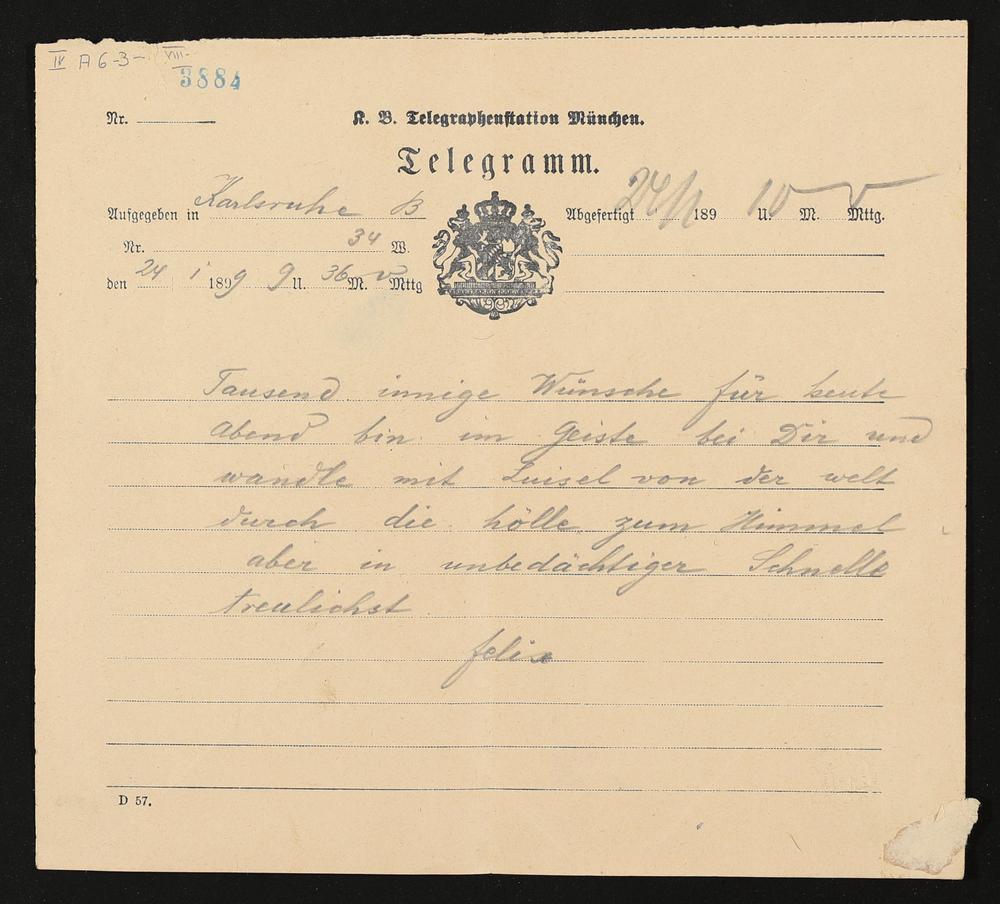 IV A 6-3- VIII-
3884
Nr.
K. B. Telegraphenstation München.
Telegramm.
Aufgegeben in Karlsruhe B
Abgefertigt 24/1 189 10 U. M. v Mttg.
Nr. 34 W.
den 24 1 1899 9 U. 36 M. v Mttg
Tausend innige Wünsche für heute
Abend bin im Geiste bei Dir und
wandle mit Luisel von der welt
durch die hölle zum Himmel
aber in unbedächtiger Schnelle
treulichst
felix
D 57.